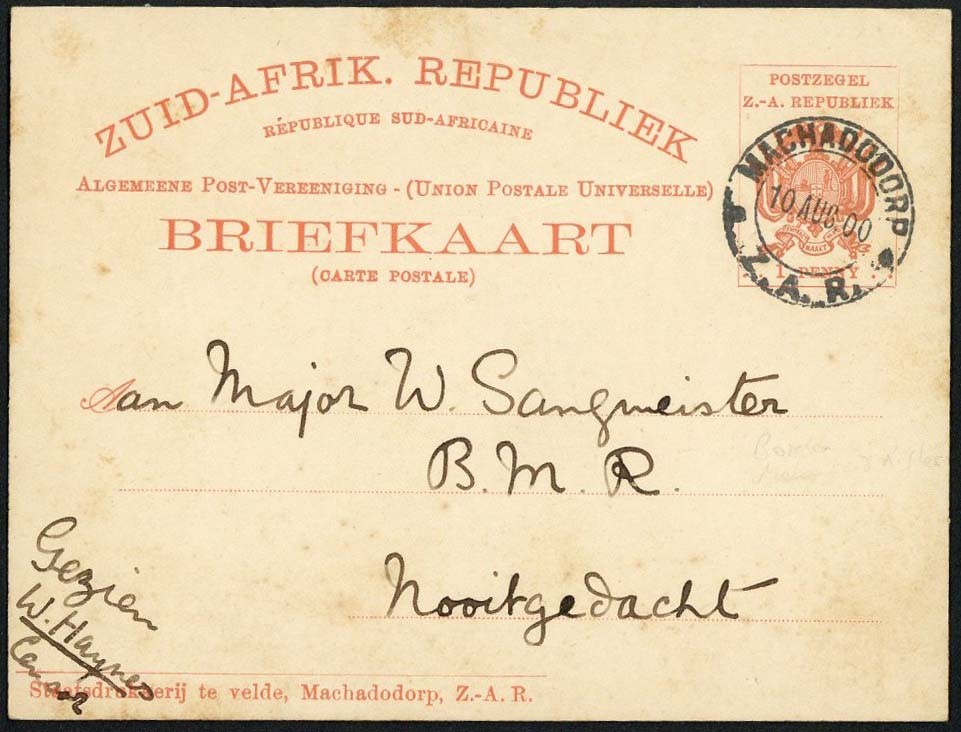 ZUID-AFRIK. REPUBLIEK
RÉPUBLIQUE SUD-AFRICAINE
ALGEMEENE POST-VEREENIGING - (UNION POSTALE UNIVERSELLE)
BRIEFKAART
(CARTE POSTALE)
POSTZEGEL
Z.-A. REPUBLIEK
MACHADODORP
10 AUG 00
Z.A.R.
1 PENNY
Aan Major W. Sangmeister
B. M. R.
Nooitgedacht
Gezien
W. Haynes
Censor
Staatsdrukkerij te velde, Machadodorp, Z.-A. R.